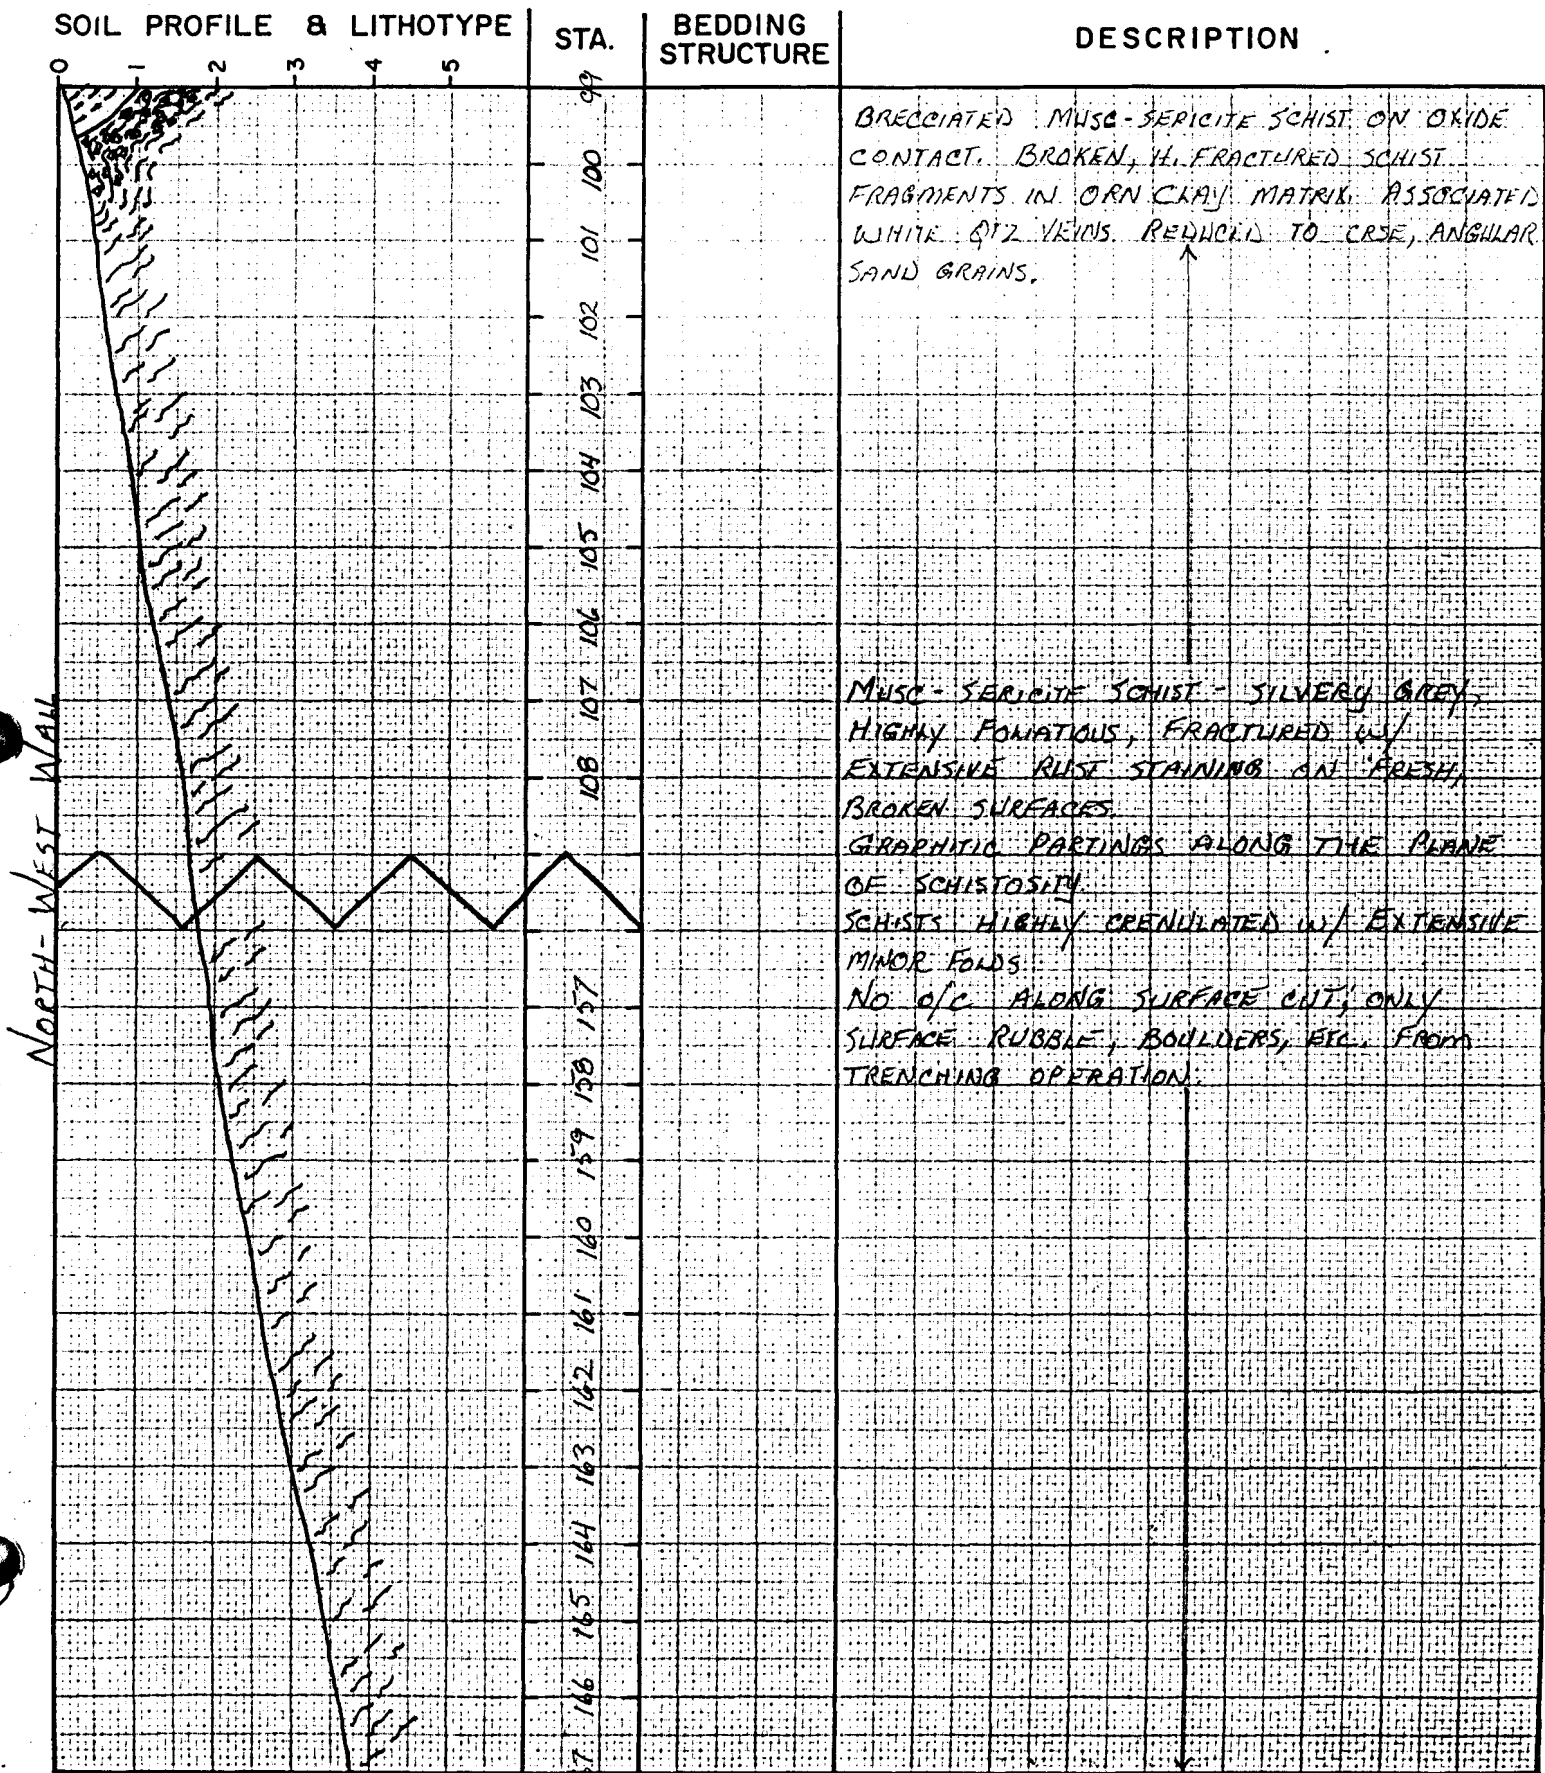 SOIL PROFILE & LITHOTYPE
STA.
BEDDING
STRUCTURE
DESCRIPTION
0 1 2 3 4 5
99
100
101
102
103
104
105
106
107
108
157
158
159
160
161
162
163
164
165
166
67
NORTH-WEST WALL
BRECCIATED MUSC-SERICITE SCHIST ON OXIDE
CONTACT. BROKEN, H. FRACTURED SCHIST
FRAGMENTS IN ORN CLAY MATRIX. ASSOCIATED
WHITE QTZ VEINS REDUCED TO CRSE, ANGULAR
SAND GRAINS.
MUSC-SERICITE SCHIST - SILVERY GREY,
HIGHLY FOLIATIOUS, FRACTURED W/
EXTENSIVE RUST STAINING ON FRESH,
BROKEN SURFACES.
GRAPHITIC PARTINGS ALONG THE PLANE
OF SCHISTOSITY.
SCHISTS HIGHLY CRENULATED W/ EXTENSIVE
MINOR FOLDS
NO O/C ALONG SURFACE CUT; ONLY
SURFACE RUBBLE, BOULDERS, ETC. FROM
TRENCHING OPERATION.